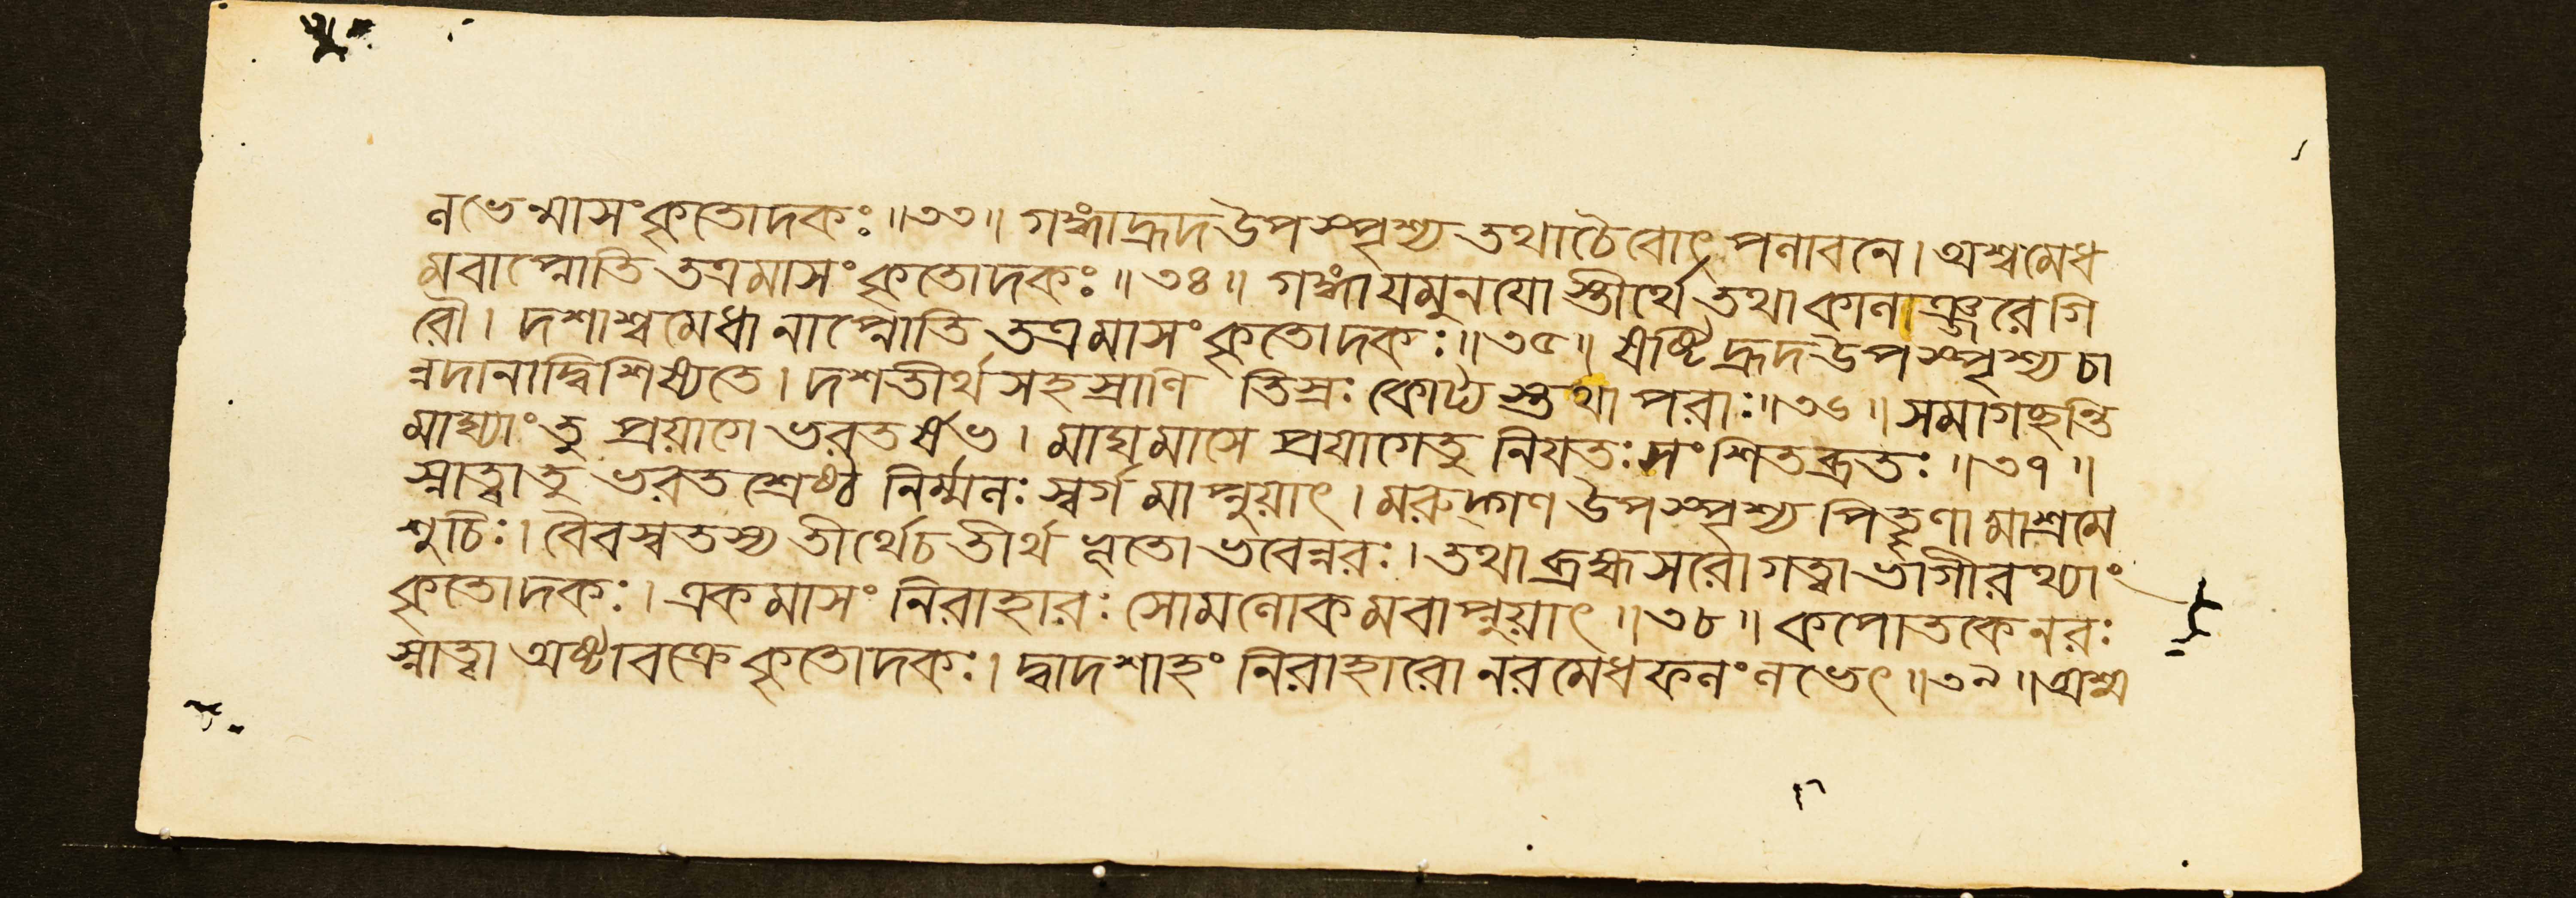 নভেন্মাসং কৃতোদকঃ ॥৩৩॥ গঙ্গাংহ্রদ উপস্পৃশ্য তথাচৈবোৎপনাবনে। অশ্বমেধ
মবাপ্নোতি তত্রমাসং কৃতোদকঃ ॥৩৪॥ গঙ্গাংযমুনযোস্তীর্থে তথাকানাঞ্জরেগি
রৌ। দশাশ্বমেধানাপ্নোতি তত্রমাসং কৃতোদকঃ ॥৩৫॥ ষষ্টিহ্রদ উপস্পৃশ্য চা
ন্নদানাদ্বিশিষ্যতে। দশতীর্থসহস্রাণি তিস্রঃ কোট্যস্তথাপরাঃ ॥৩৬॥ সমাগছন্তি
মাঘ্যাং তু প্রয়াগে ভরতর্ষভ। মাঘমাসে প্রযাগেতু নিযতঃ সংশিতব্রতঃ ॥৩৭॥
স্নাত্বাতু ভরতশ্রেষ্ঠ নির্ম্মনঃ স্বর্গমাপ্নুয়াৎ। মরুদ্গণ উপস্পৃশ্য পিতৃণামাশ্রমে
শুচিঃ। বৈবস্বতস্য তীর্থেচ তীর্থভূতো ভবেন্নরঃ। তথা ব্রহ্মসরো গত্বা ভাগীরথ্যাং
কৃতোদকঃ। একমাসং নিরাহারঃ সোমনোকমবাপ্নুয়াৎ ॥৩৮॥ কপোতকে নরঃ
স্নাত্বা অষ্টাবক্রে কৃতোদকঃ। দ্বাদশাহং নিরাহারো নরমেধফনং নভেৎ ॥৩৯॥ অশ্ম